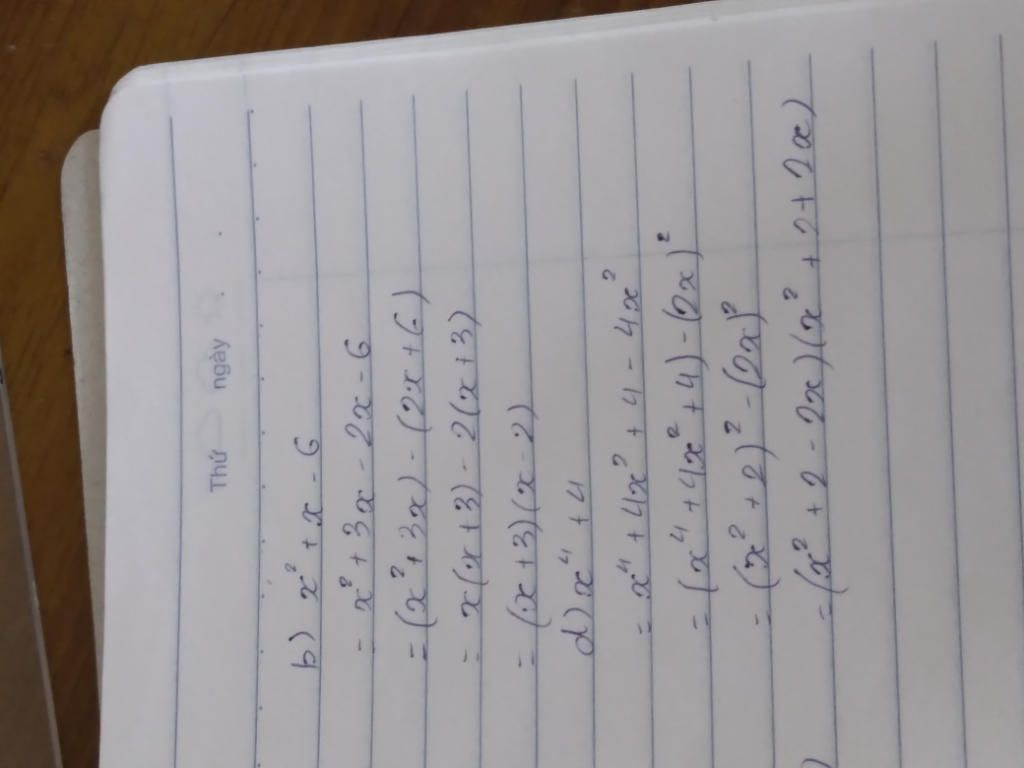 Thứ ngày
b) x² + x - 6
= x² + 3x - 2x - 6
= (x² + 3x) - (2x + 6)
= x(x + 3) - 2(x + 3)
= (x + 3)(x - 2)
d) x⁴ + 4
= x⁴ + 4x² + 4 - 4x²
= (x⁴ + 4x² + 4) - (2x)²
= (x² + 2)² - (2x)²
= (x² + 2 - 2x)(x² + 2 + 2x)